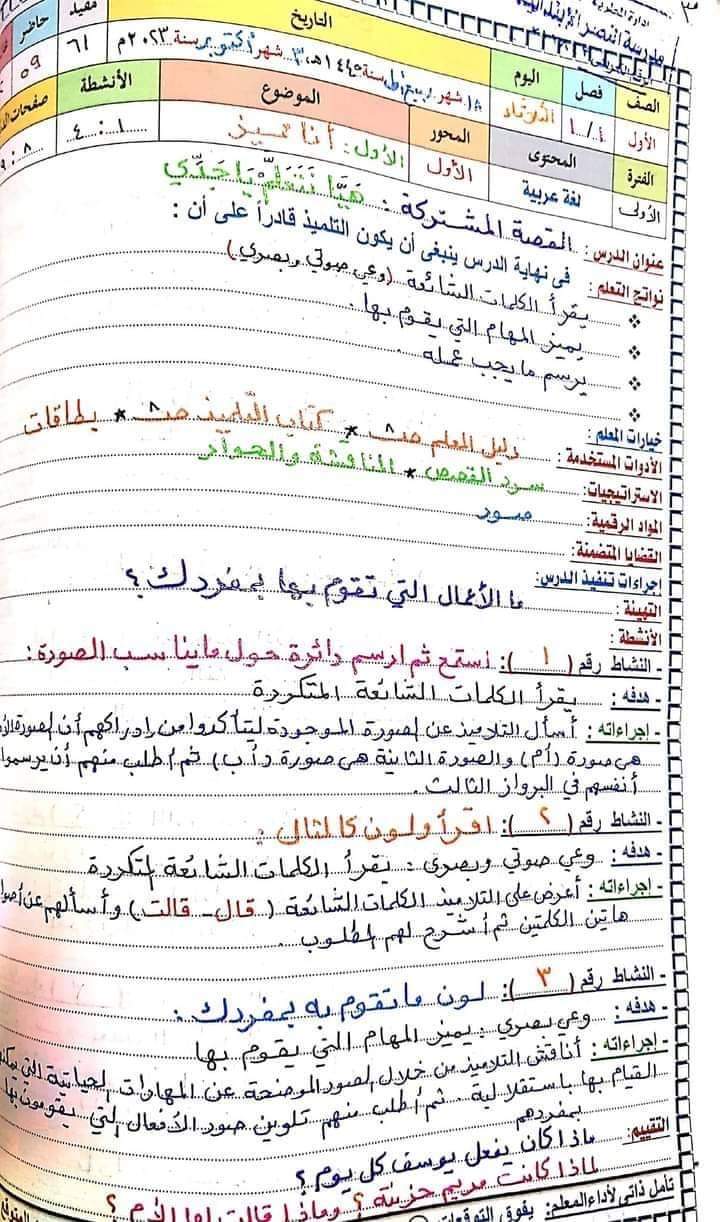 إدارة
مدرسة النصر
التاريخ
مقيد
حاضر
٦١
٥٩
الصف
فصل
اليوم
١٨ شهر ربيع أول سنة ١٤٤٥هـ، ٣ شهر أكتوبر سنة ٢٠٢٣م
الأول
١/١
الثلاثاء
الموضوع
الأنشطة
صفحات
الفترة
المحتوى
المحور
الأول: أنا مميز
١ : ٤
٨ : ٩
الأولى
لغة عربية
الأول
عنوان الدرس: القصة المشتركة: هَيَّا نَتَعَلَّم يَا جَدِّي
نواتج التعلم: فى نهاية الدرس ينبغى أن يكون التلميذ قادراً على أن:
❖ يقرأ الكلمات الشائعة (وعي صوتي وبصري)
❖ يميز المهام التي يقوم بها.
❖ يرسم ما يجب عمله.
❖
خيارات المعلم:
الأدوات المستخدمة: دليل المعلم صـ ٨ * كتاب التلميذ صـ ٨ * بطاقات
الاستراتيجيات: سرد القصص * المناقشة والحوار
المواد الرقمية: صور
القضايا المتضمنة:
إجراءات تنفيذ الدرس:
التهيئة: ما الأعمال التي تقوم بها بمفردك؟
الأنشطة:
- النشاط رقم (١): استمع ثم ارسم دائرة حول ما يناسب الصورة:
- هدفه: يقرأ الكلمات الشائعة المتكررة
- اجراءاته: أسأل التلاميذ عن الصورة الموجودة ليتأكدوا من إدراكهم أن الصورة
هي صورة (أم) والصورة الثانية هي صورة (أب) ثم أطلب منهم أن يرسموا
أنفسهم في البرواز الثالث.
- النشاط رقم (٢): اقرأ ولون كالمثال:
- هدفه: وعي صوتي وبصري: يقرأ الكلمات الشائعة المتكررة
- اجراءاته: أعرض على التلاميذ الكلمات الشائعة (قال - قالت) وأسألهم عن
هاتين الكلمتين ثم أشرح لهم المطلوب.
- النشاط رقم (٣): لون ما تقوم به بمفردك:
- هدفه: وعي بصري: يميز المهام التي يقوم بها
- اجراءاته: أناقش التلاميذ من خلال الصور الموضحة عن المهارات الحياتية التي
القيام بها باستقلالية. ثم أطلب منهم تلوين صور الأفعال التي يقومون بها
بمفردهم
التقييم: ماذا كان يفعل يوسف كل يوم؟
لماذا كانت مريم حزينة؟ وماذا قالت لها الأم؟
تأمل ذاتى لأداء المعلم: يفوق التوقعات